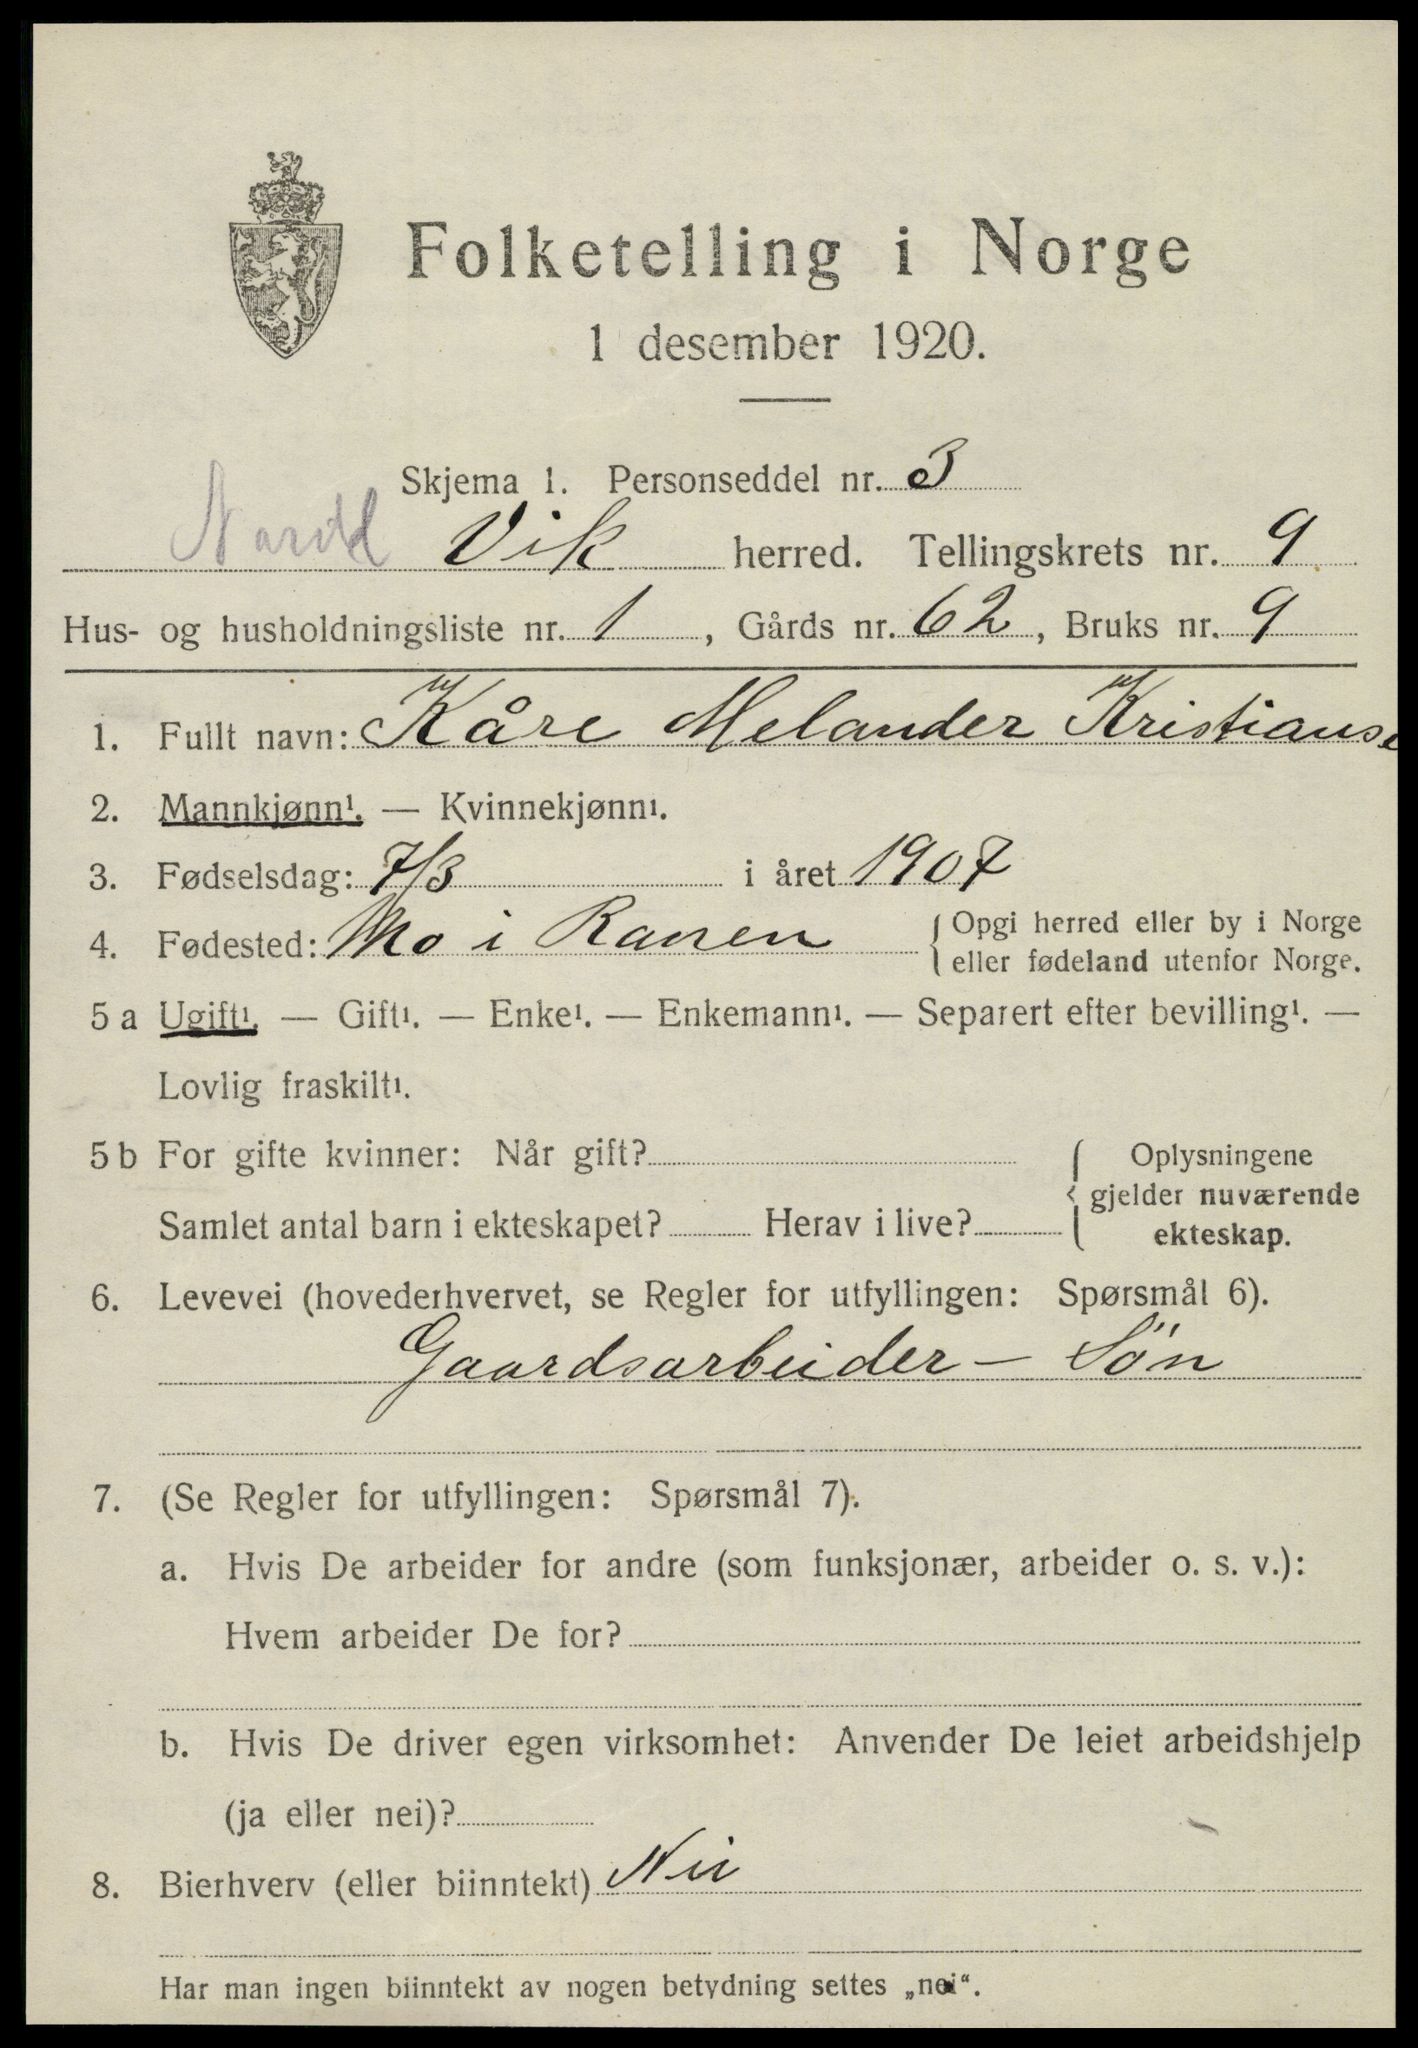 Folketelling i Norge
1 desember 1920.
Skjema 1. Personseddel nr. 3
Nordl Vik herred. Tellingskrets nr. 9
Hus- og husholdningsliste nr. 1, Gårds nr. 62, Bruks nr. 9
1. Fullt navn: Kåre Melander Kristianse
2. Mannkjønn¹. — Kvinnekjønn¹.
3. Fødselsdag: 7/3 i året 1907
4. Fødested: Mo i Ranen { Opgi herred eller by i Norge
eller fødeland utenfor Norge.
5 a Ugift¹. — Gift¹. — Enke¹. — Enkemann¹. — Separert efter bevilling¹. —
Lovlig fraskilt¹.
5 b For gifte kvinner: Når gift?
Samlet antal barn i ekteskapet? Herav i live?
{ Oplysningene
gjelder nuværende
ekteskap.
6. Levevei (hovederhvervet, se Regler for utfyllingen: Spørsmål 6).
Gaardsarbeider – Søn
7. (Se Regler for utfyllingen: Spørsmål 7).
a. Hvis De arbeider for andre (som funksjonær, arbeider o. s. v.):
Hvem arbeider De for?
b. Hvis De driver egen virksomhet: Anvender De leiet arbeidshjelp
(ja eller nei)?
8. Bierhverv (eller biinntekt) Nei
Har man ingen biinntekt av nogen betydning settes „nei“.